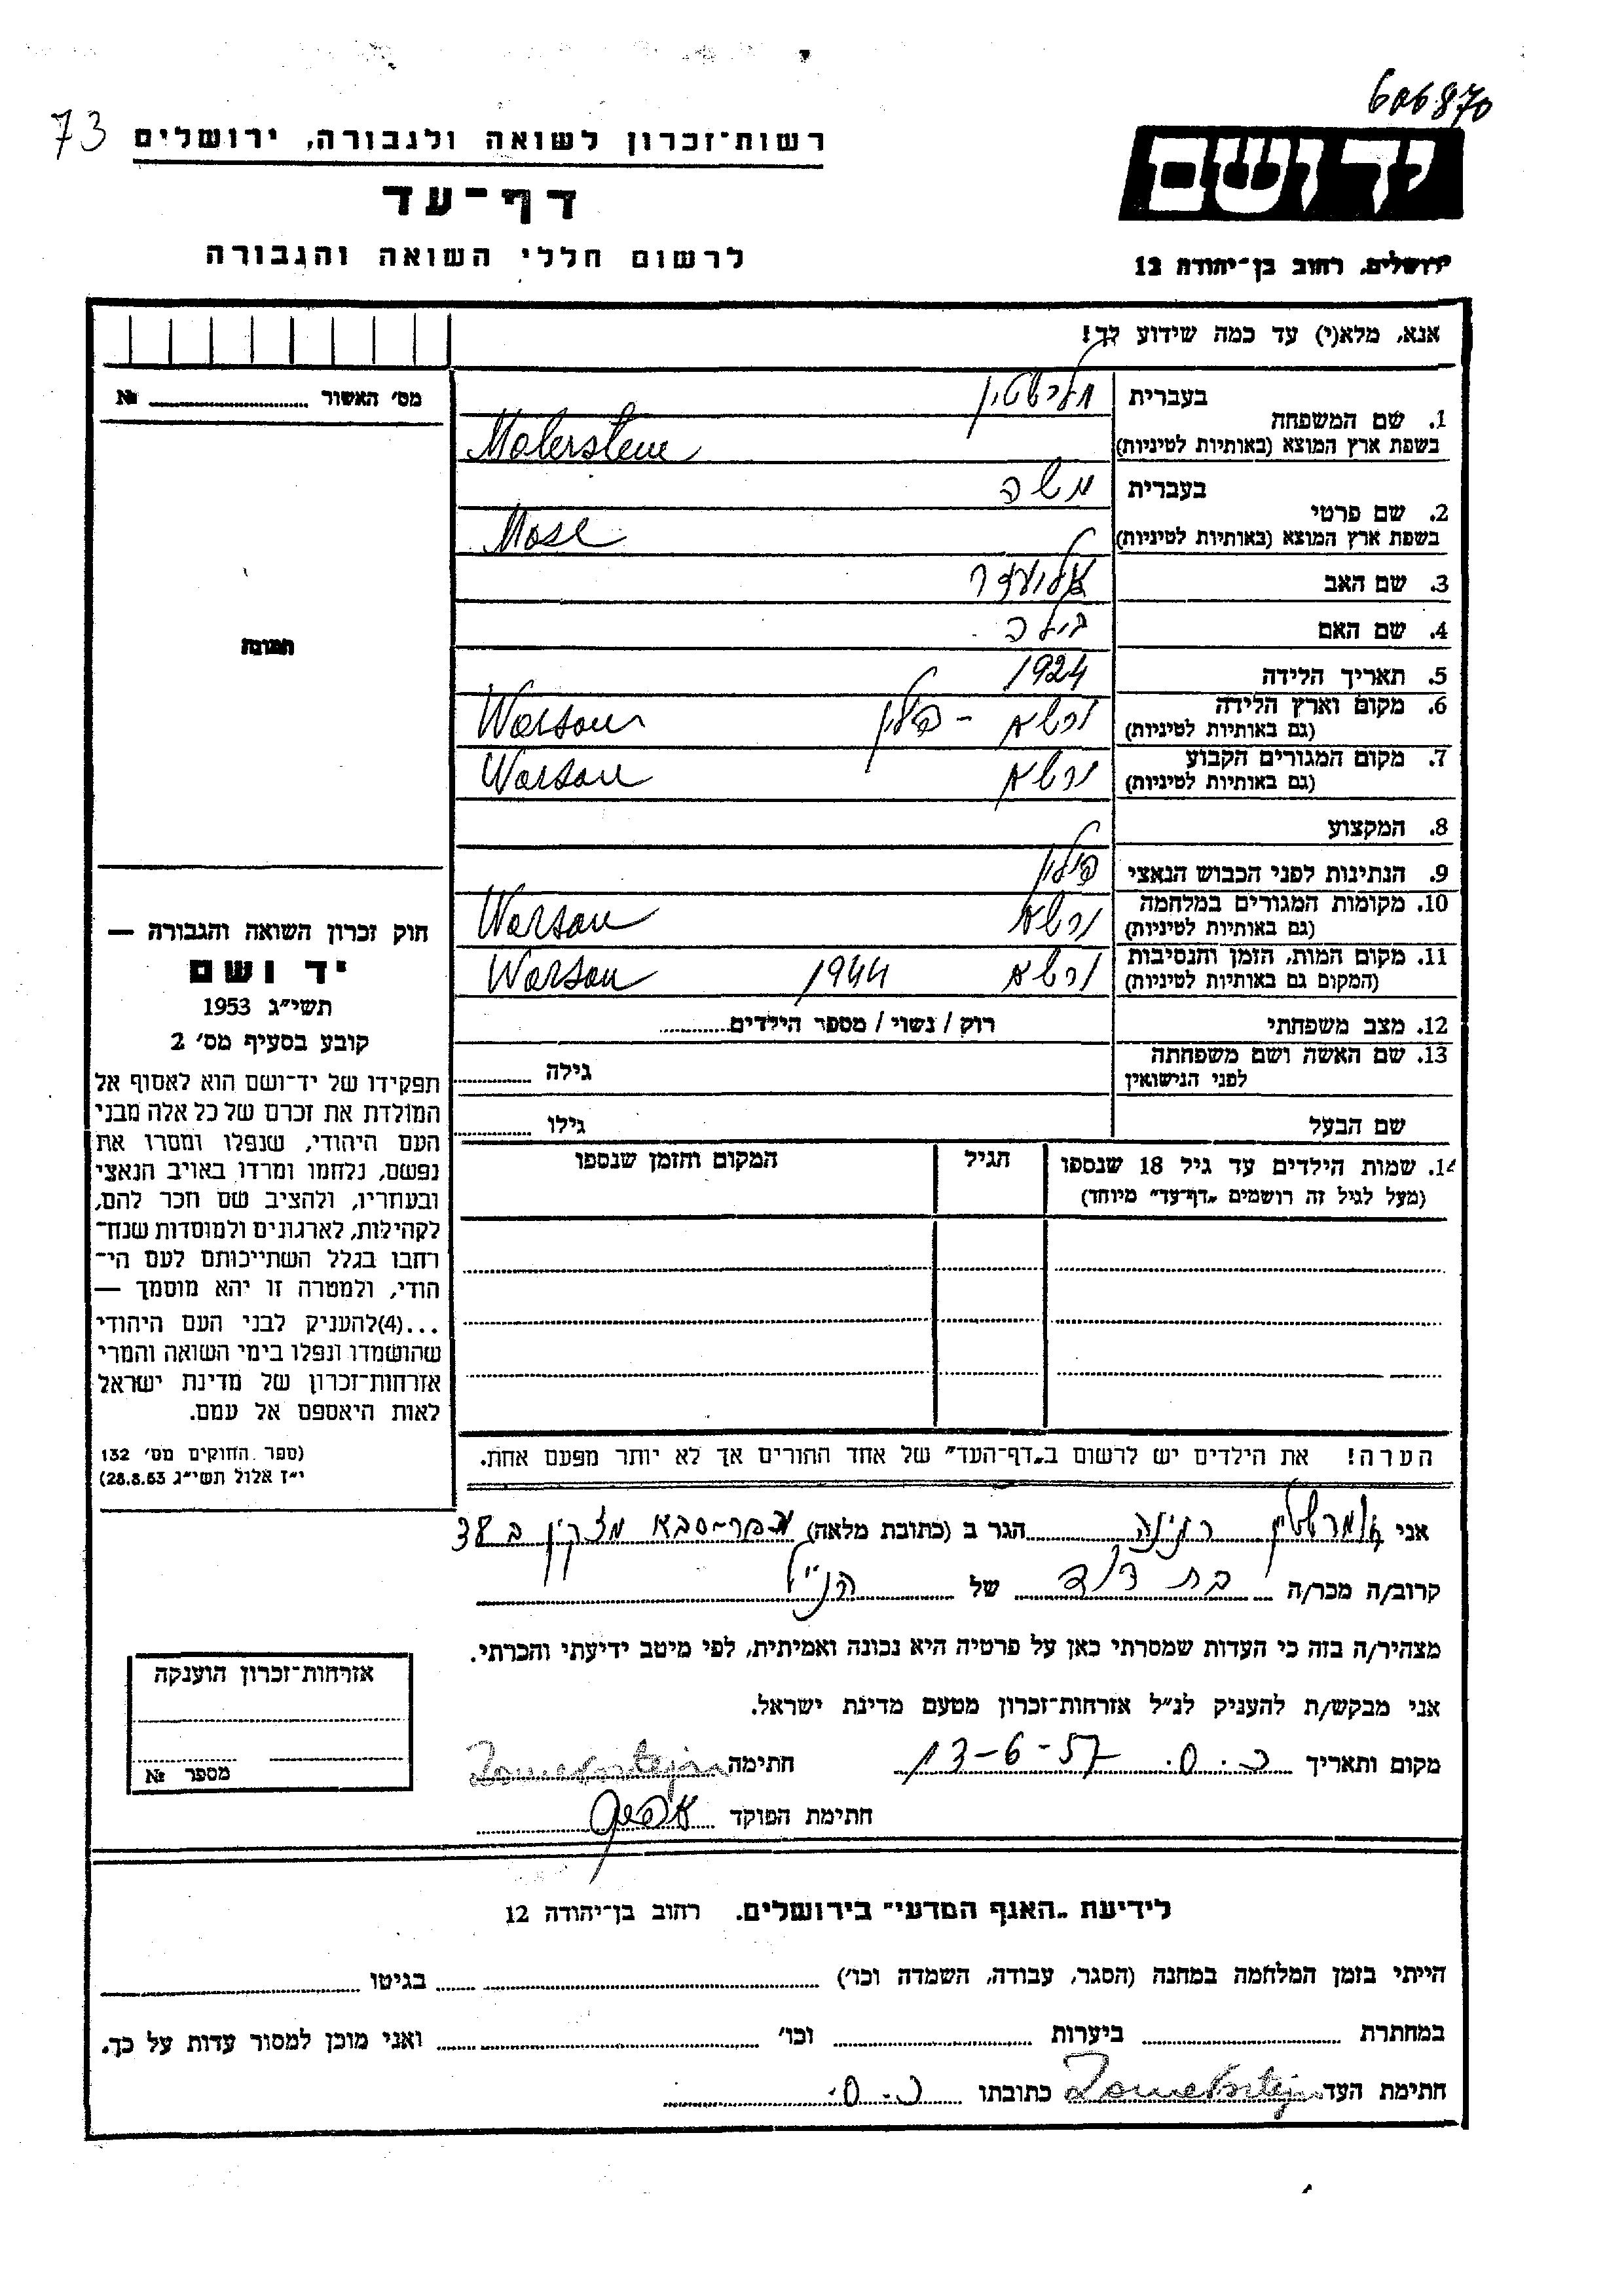 606870
73
רשות־זכרון לשואה ולגבורה, ירושלים
יד ושם
דף־עד
לרשום חללי השואה והגבורה
ירושלים, רחוב בן־יהודה 12
אנא, מלא(י) עד כמה שידוע לך!
מס׳ האשור № 
1. שם המשפחה
בעברית
בשפת ארץ המוצא (באותיות לטיניות) Malerstein
2. שם פרטי
בעברית משה
בשפת ארץ המוצא (באותיות לטיניות) Mose
3. שם האב אליעזר
4. שם האם גילה
5. תאריך הלידה 1924
6. מקום וארץ הלידה ורשא – פולין Warsau
(גם באותיות לטיניות)
7. מקום המגורים הקבוע ורשא Warsau
(גם באותיות לטיניות)
8. המקצוע
9. הנתינות לפני הכבוש הנאצי פולין
10. מקומות המגורים במלחמה ורשא Warsau
(גם באותיות לטיניות)
11. מקום המות, הזמן והנסיבות ורשא 1944 Warsau
(המקום גם באותיות לטיניות)
12. מצב משפחתי רוק / נשוי / מספר הילדים
13. שם האשה ושם משפחתה
לפני הנישואין גילה
שם הבעל גילו
14. שמות הילדים עד גיל 18 שנספו הגיל המקום והזמן שנספו
(מעל לגיל זה רושמים „דף־עד" מיוחד)
הערה! את הילדים יש לרשום ב„דף־העד" של אחד ההורים אך לא יותר מפעם אחת.
תמונה
חוק זכרון השואה והגבורה —
יד ושם
תשי״ג 1953
קובע בסעיף מס׳ 2
תפקידו של יד־ושם הוא לאסוף אל
המולדת את זכרם של כל אלה מבני
העם היהודי, שנפלו ומסרו את
נפשם, נלחמו ומרדו באויב הנאצי
ובעוזריו, ולהציב שם וזכר להם,
לקהילות, לארגונים ולמוסדות שנח־
רבו בגלל השתייכותם לעם הי־
הודי, ולמטרה זו יהא מוסמך —
...(4)להעניק לבני העם היהודי
שהושמדו ונפלו בימי השואה והמרי
אזרחות־זכרון של מדינת ישראל
לאות היאספם אל עמם.
(ספר החוקים מס׳ 132
י״ז אלול תשי״ג 28.8.53)
אני הגר ב (כתובת מלאה) כפר־סבא
קרוב/ה מכר/ה בת דוד של הנ״ל
מצהיר/ה בזה כי העדות שמסרתי כאן על פרטיה היא נכונה ואמיתית, לפי מיטב ידיעתי והכרתי.
אני מבקש/ת להעניק לנ״ל אזרחות־זכרון מטעם מדינת ישראל.
מקום ותאריך כ.ס. 13-6-57 חתימה
חתימת הפוקד
אזרחות־זכרון הוענקה
מספר №
לידיעת „האגף המדעי" בירושלים. רחוב בן־יהודה 12
הייתי בזמן המלחמה במחנה (הסגר, עבודה, השמדה וכו׳) בגיטו
במחתרת ביערות וכו׳ ואני מוכן למסור עדות על כך.
חתימת העד כתובתו כ.ס.